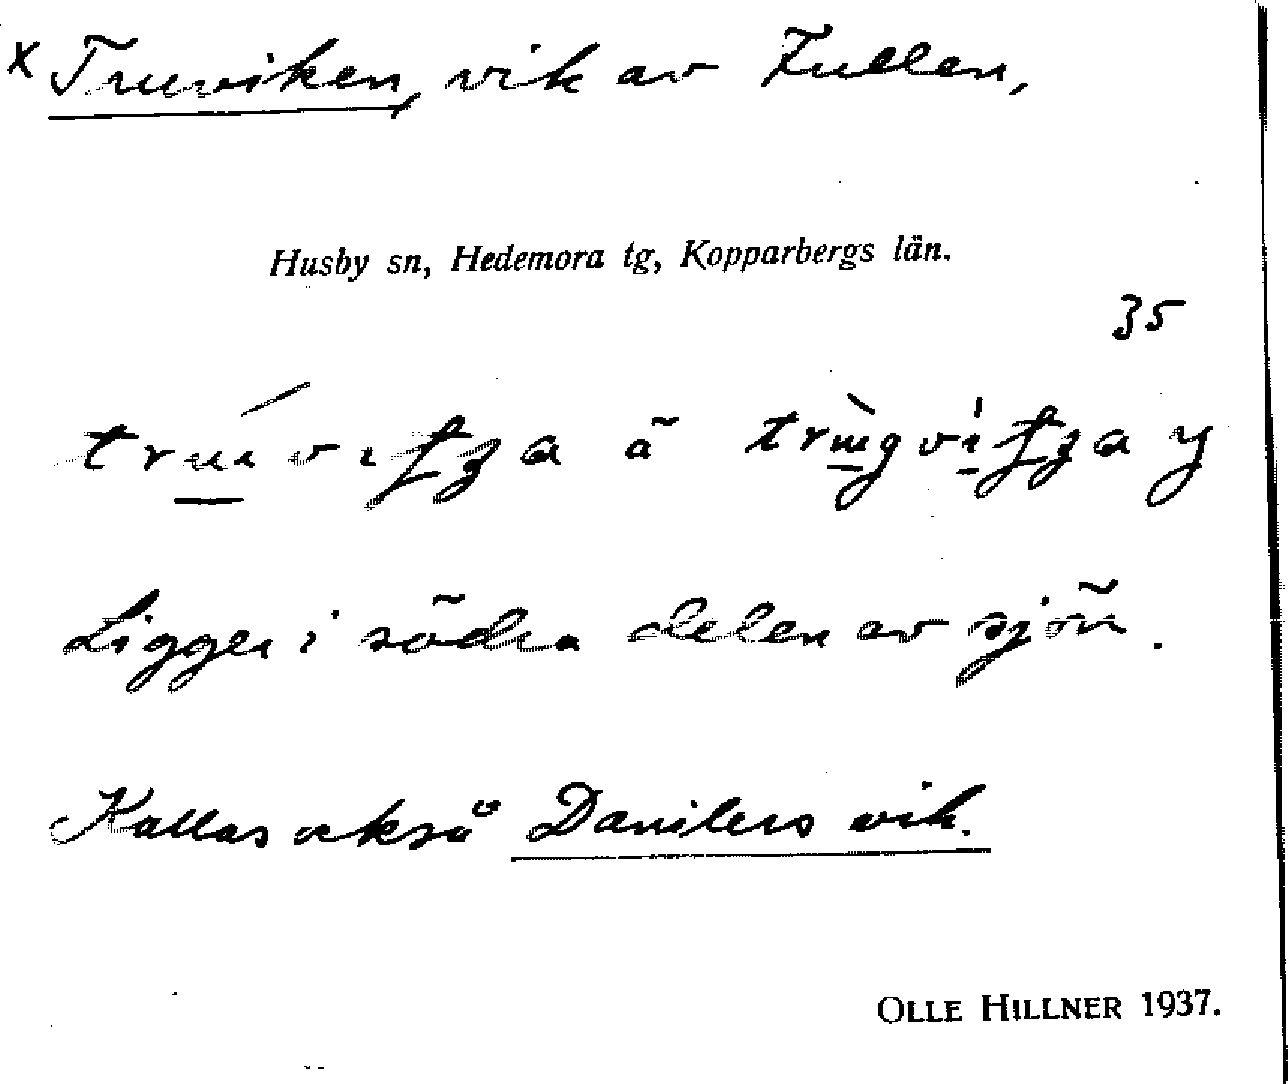 x Truviken, vik av Fullen,
Husby sn, Hedemora tg, Kopparbergs län.
35
å
Ligger i södra delen av sjön.
Kallas också Danilers vik.
OLLE HILLNER 1937.